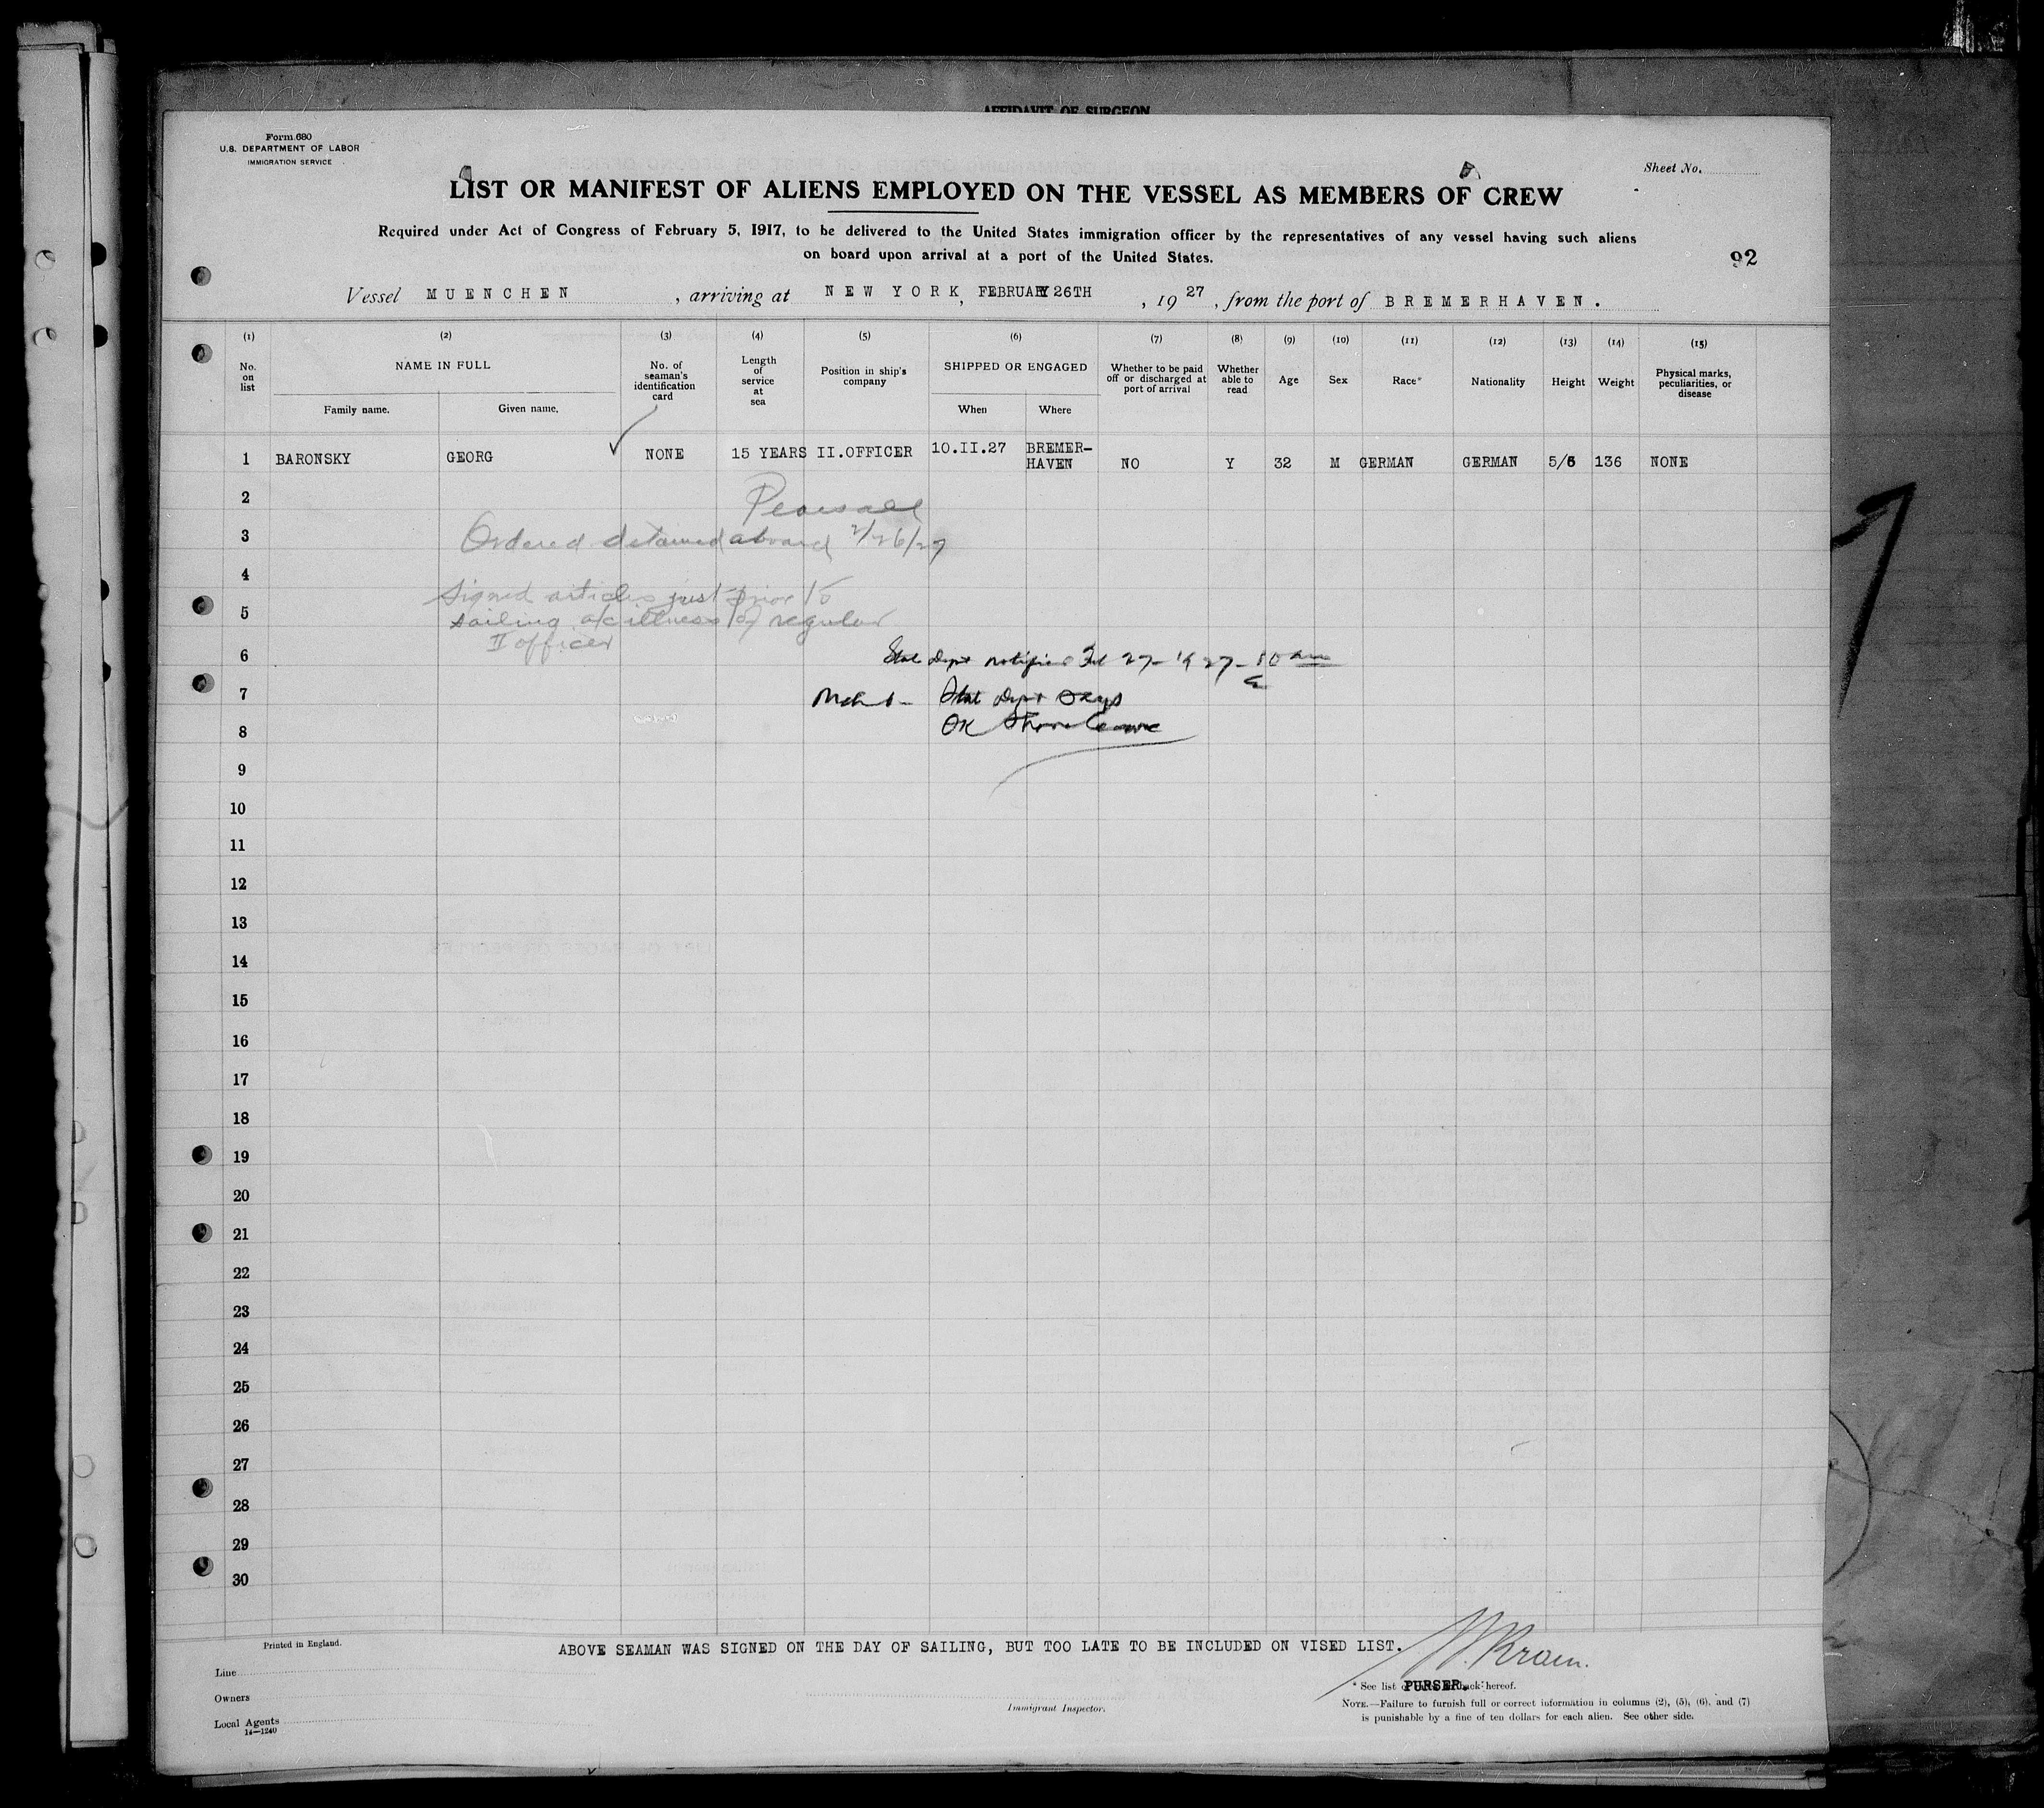 AFFIDAVIT OF SURGEON
Form 680
U.S. DEPARTMENT OF LABOR
IMMIGRATION SERVICE
Sheet No.
LIST OR MANIFEST OF ALIENS EMPLOYED ON THE VESSEL AS MEMBERS OF CREW
Required under Act of Congress of February 5, 1917, to be delivered to the United States immigration officer by the representatives of any vessel having such aliens
on board upon arrival at a port of the United States.
92
Vessel MUENCHEN, arriving at NEW YORK, FEBRUARY 26TH, 1927, from the port of BREMERHAVEN.
(1) (2) (3) (4) (5) (6) (7) (8) (9) (10) (11) (12) (13) (14) (15)
No. on list NAME IN FULL Family name. Given name. No. of seaman's identification card Length of service at sea Position in ship's company SHIPPED OR ENGAGED When Where Whether to be paid off or discharged at port of arrival Whether able to read Age Sex Race* Nationality Height Weight Physical marks, peculiarities, or disease
1 BARONSKY GEORG NONE 15 YEARS II.OFFICER 10.II.27 BREMER-HAVEN NO Y 32 M GERMAN GERMAN 5/6 136 NONE
2 Pearsall
3 Ordered detained aboard 2/26/27
4
Signed articles just prior to
5 sailing a/c illness of regular
II officer
6 State Dept notified Feb 27-1927-10 am
7 State Dept Says
8 OK Shore Leave
9
10
11
12
13
14
15
16
17
18
19
20
21
22
23
24
25
26
27
28
29
30
Printed in England.
ABOVE SEAMAN WAS SIGNED ON THE DAY OF SAILING, BUT TOO LATE TO BE INCLUDED ON VISED LIST.
Line
Owners
Local Agents
14—1240
Immigrant Inspector.
* See list back hereof.
PURSER.
NOTE.—Failure to furnish full or correct information in columns (2), (5), (6), and (7)
is punishable by a fine of ten dollars for each alien. See other side.